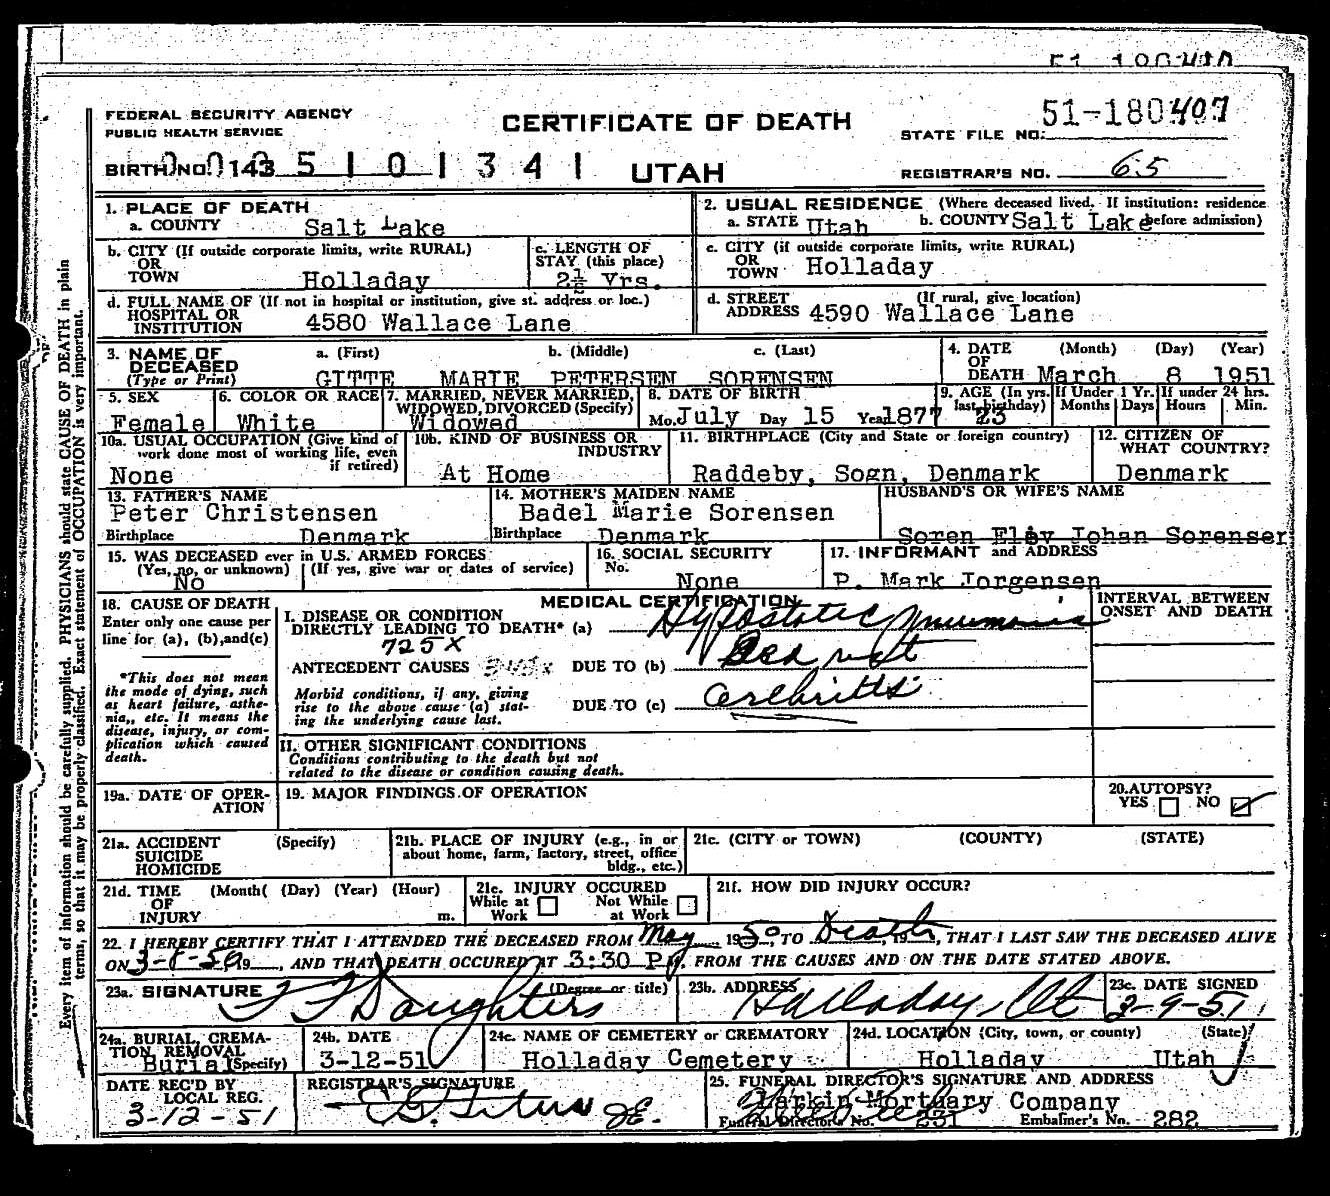 FEDERAL SECURITY AGENCY
PUBLIC HEALTH SERVICE
CERTIFICATE OF DEATH
STATE FILE NO. 51-180407
BIRTH NO. 143 5101341
UTAH
REGISTRAR'S NO. 65
1. PLACE OF DEATH
a. COUNTY Salt Lake
2. USUAL RESIDENCE (Where deceased lived. If institution: residence before admission)
a. STATE Utah b. COUNTY Salt Lake
b. CITY (If outside corporate limits, write RURAL)
OR
TOWN Holladay
c. LENGTH OF
STAY (this place)
2½ Yrs.
c. CITY (if outside corporate limits, write RURAL)
OR
TOWN Holladay
d. FULL NAME OF (If not in hospital or institution, give st. address or loc.)
HOSPITAL OR
INSTITUTION 4580 Wallace Lane
d. STREET (If rural, give location)
ADDRESS 4590 Wallace Lane
3. NAME OF
DECEASED
(Type or Print)
a. (First) b. (Middle) c. (Last)
GITTE MARIE PETERSEN SORENSEN
4. DATE (Month) (Day) (Year)
OF
DEATH March 8 1951
5. SEX
Female
6. COLOR OR RACE
White
7. MARRIED, NEVER MARRIED,
WIDOWED, DIVORCED (Specify)
Widowed
8. DATE OF BIRTH
Mo. July Day 15 Year 1877
9. AGE (In yrs.
last birthday)
If Under 1 Yr.
Months Days
If under 24 hrs.
Hours Min.
10a. USUAL OCCUPATION (Give kind of
work done most of working life, even
if retired)
None
10b. KIND OF BUSINESS OR
INDUSTRY
At Home
11. BIRTHPLACE (City and State or foreign country)
Raddeby, Sogn, Denmark
12. CITIZEN OF
WHAT COUNTRY?
Denmark
13. FATHER'S NAME
Peter Christensen
Birthplace Denmark
14. MOTHER'S MAIDEN NAME
Badel Marie Sorensen
Birthplace Denmark
HUSBAND'S OR WIFE'S NAME
Soren Johan Sorensen
15. WAS DECEASED ever in U.S. ARMED FORCES
(Yes, no, or unknown) (If yes, give war or dates of service)
No
16. SOCIAL SECURITY
No.
None
17. INFORMANT and ADDRESS
P. Mark Jorgensen
18. CAUSE OF DEATH
Enter only one cause per
line for (a), (b), and (c)
*This does not mean
the mode of dying, such
as heart failure, asthe-
nia,, etc. It means the
disease, injury, or com-
plication which caused
death.
MEDICAL CERTIFICATION
INTERVAL BETWEEN
ONSET AND DEATH
I. DISEASE OR CONDITION
DIRECTLY LEADING TO DEATH* (a) Hypostatic Pneumonia
725X
ANTECEDENT CAUSES DUE TO (b) Bed
Morbid conditions, if any, giving
rise to the above cause (a) stat-
ing the underlying cause last.
DUE TO (c)
II. OTHER SIGNIFICANT CONDITIONS
Conditions contributing to the death but not
related to the disease or condition causing death.
19a. DATE OF OPER-
ATION
19. MAJOR FINDINGS OF OPERATION
20. AUTOPSY?
YES NO
21a. ACCIDENT (Specify)
SUICIDE
HOMICIDE
21b. PLACE OF INJURY (e.g., in or
about home, farm, factory, street, office
bldg., etc.)
21c. (CITY or TOWN) (COUNTY) (STATE)
21d. TIME (Month( (Day) (Year) (Hour)
OF
INJURY m.
21e. INJURY OCCURED
While at Work Not While at Work
21f. HOW DID INJURY OCCUR?
22. I HEREBY CERTIFY THAT I ATTENDED THE DECEASED FROM May 1950, TO Death, 19, THAT I LAST SAW THE DECEASED ALIVE
ON 3-8-50 19, AND THAT DEATH OCCURED AT 3:30 P m. FROM THE CAUSES AND ON THE DATE STATED ABOVE.
23a. SIGNATURE (Degree or title)
F F Daughters
23b. ADDRESS
Holladay, Ut
23c. DATE SIGNED
3-9-51
24a. BURIAL, CREMA-
TION, REMOVAL
Burial (Specify)
24b. DATE
3-12-51
24c. NAME OF CEMETERY or CREMATORY
Holladay Cemetery
24d. LOCATION (City, town, or county) (State)
Holladay Utah
DATE REC'D BY
LOCAL REG.
3-12-51
REGISTRAR'S SIGNATURE
25. FUNERAL DIRECTOR'S SIGNATURE AND ADDRESS
Larkin Mortuary Company
Funeral Director's No. 231 Embalmer's No. 282
Every item of information should be carefully supplied. PHYSICIANS should state CAUSE OF DEATH in plain
terms, so that it may be properly classified. Exact statement of OCCUPATION is very important.